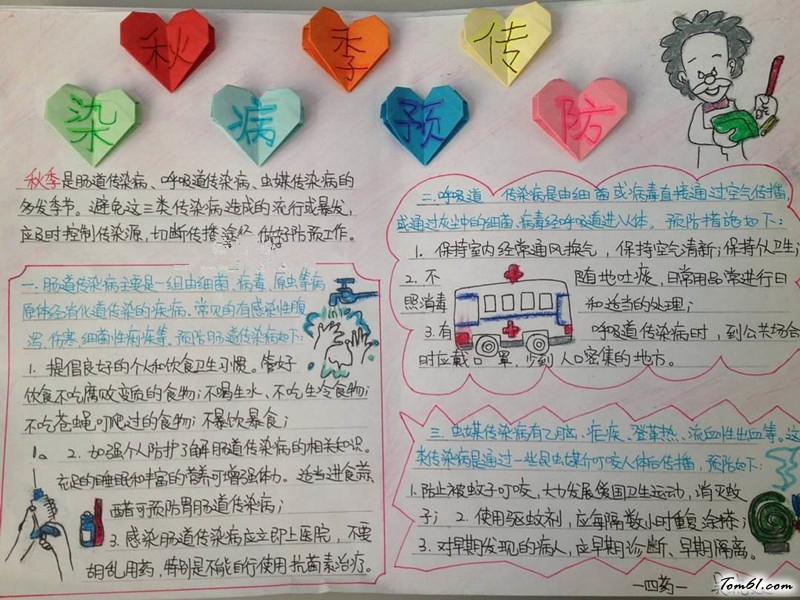 秋季传
染病预防
秋季是肠道传染病、呼吸道传染病、虫媒传染病的
多发季节。避免这三类传染病造成的流行或暴发,
应及时控制传染源,切断传播途径 做好防预工作。
一.肠道传染病主要是一组由细菌、病毒、原虫等病
原体经消化道传染的疾病。常见的有感染性腹
泻、伤寒、细菌性痢疾等。预防肠道传染病如下:
1. 提倡良好的个人和饮食卫生习惯。管好
饮食不吃腐败变质的食物;不喝生水、不吃生冷食物;
不吃苍蝇叮爬过的食物;不暴饮暴食;
2. 加强个人防护了解肠道传染病的相关知识。
充足的睡眠和丰富的营养可增强体力。适当进食蒜、
醋可预防胃肠道传染病;
3. 感染肠道传染病应立即上医院,不要
胡乱用药,特别是不能自行使用抗菌素治疗。
二.呼吸道 传染病是由细菌或病毒直接通过空气传播,
或通过灰尘中的细菌、病毒经呼吸道进入人体。预防措施如下:
1. 保持室内经常通风换气,保持空气清新;保持个人卫生;
2. 不 随地吐痰,日常用品常进行日
照消毒 和适当的处理;
3. 有 呼吸道传染病时,到公共场合
时应戴口罩,少到人口密集的地方。
三.虫媒传染病有乙脑、疟疾、登革热、流血性出血等。这
类传染病是通过一些昆虫媒介叮咬人体后传播,预防如下:
1.防止被蚊子叮咬,大力发展爱国卫生运动,消灭蚊
子; 2. 使用驱蚊剂,应每隔数小时重复涂搽;
3. 对早期发现的病人,应早期诊断、早期隔离。
Tom61.com